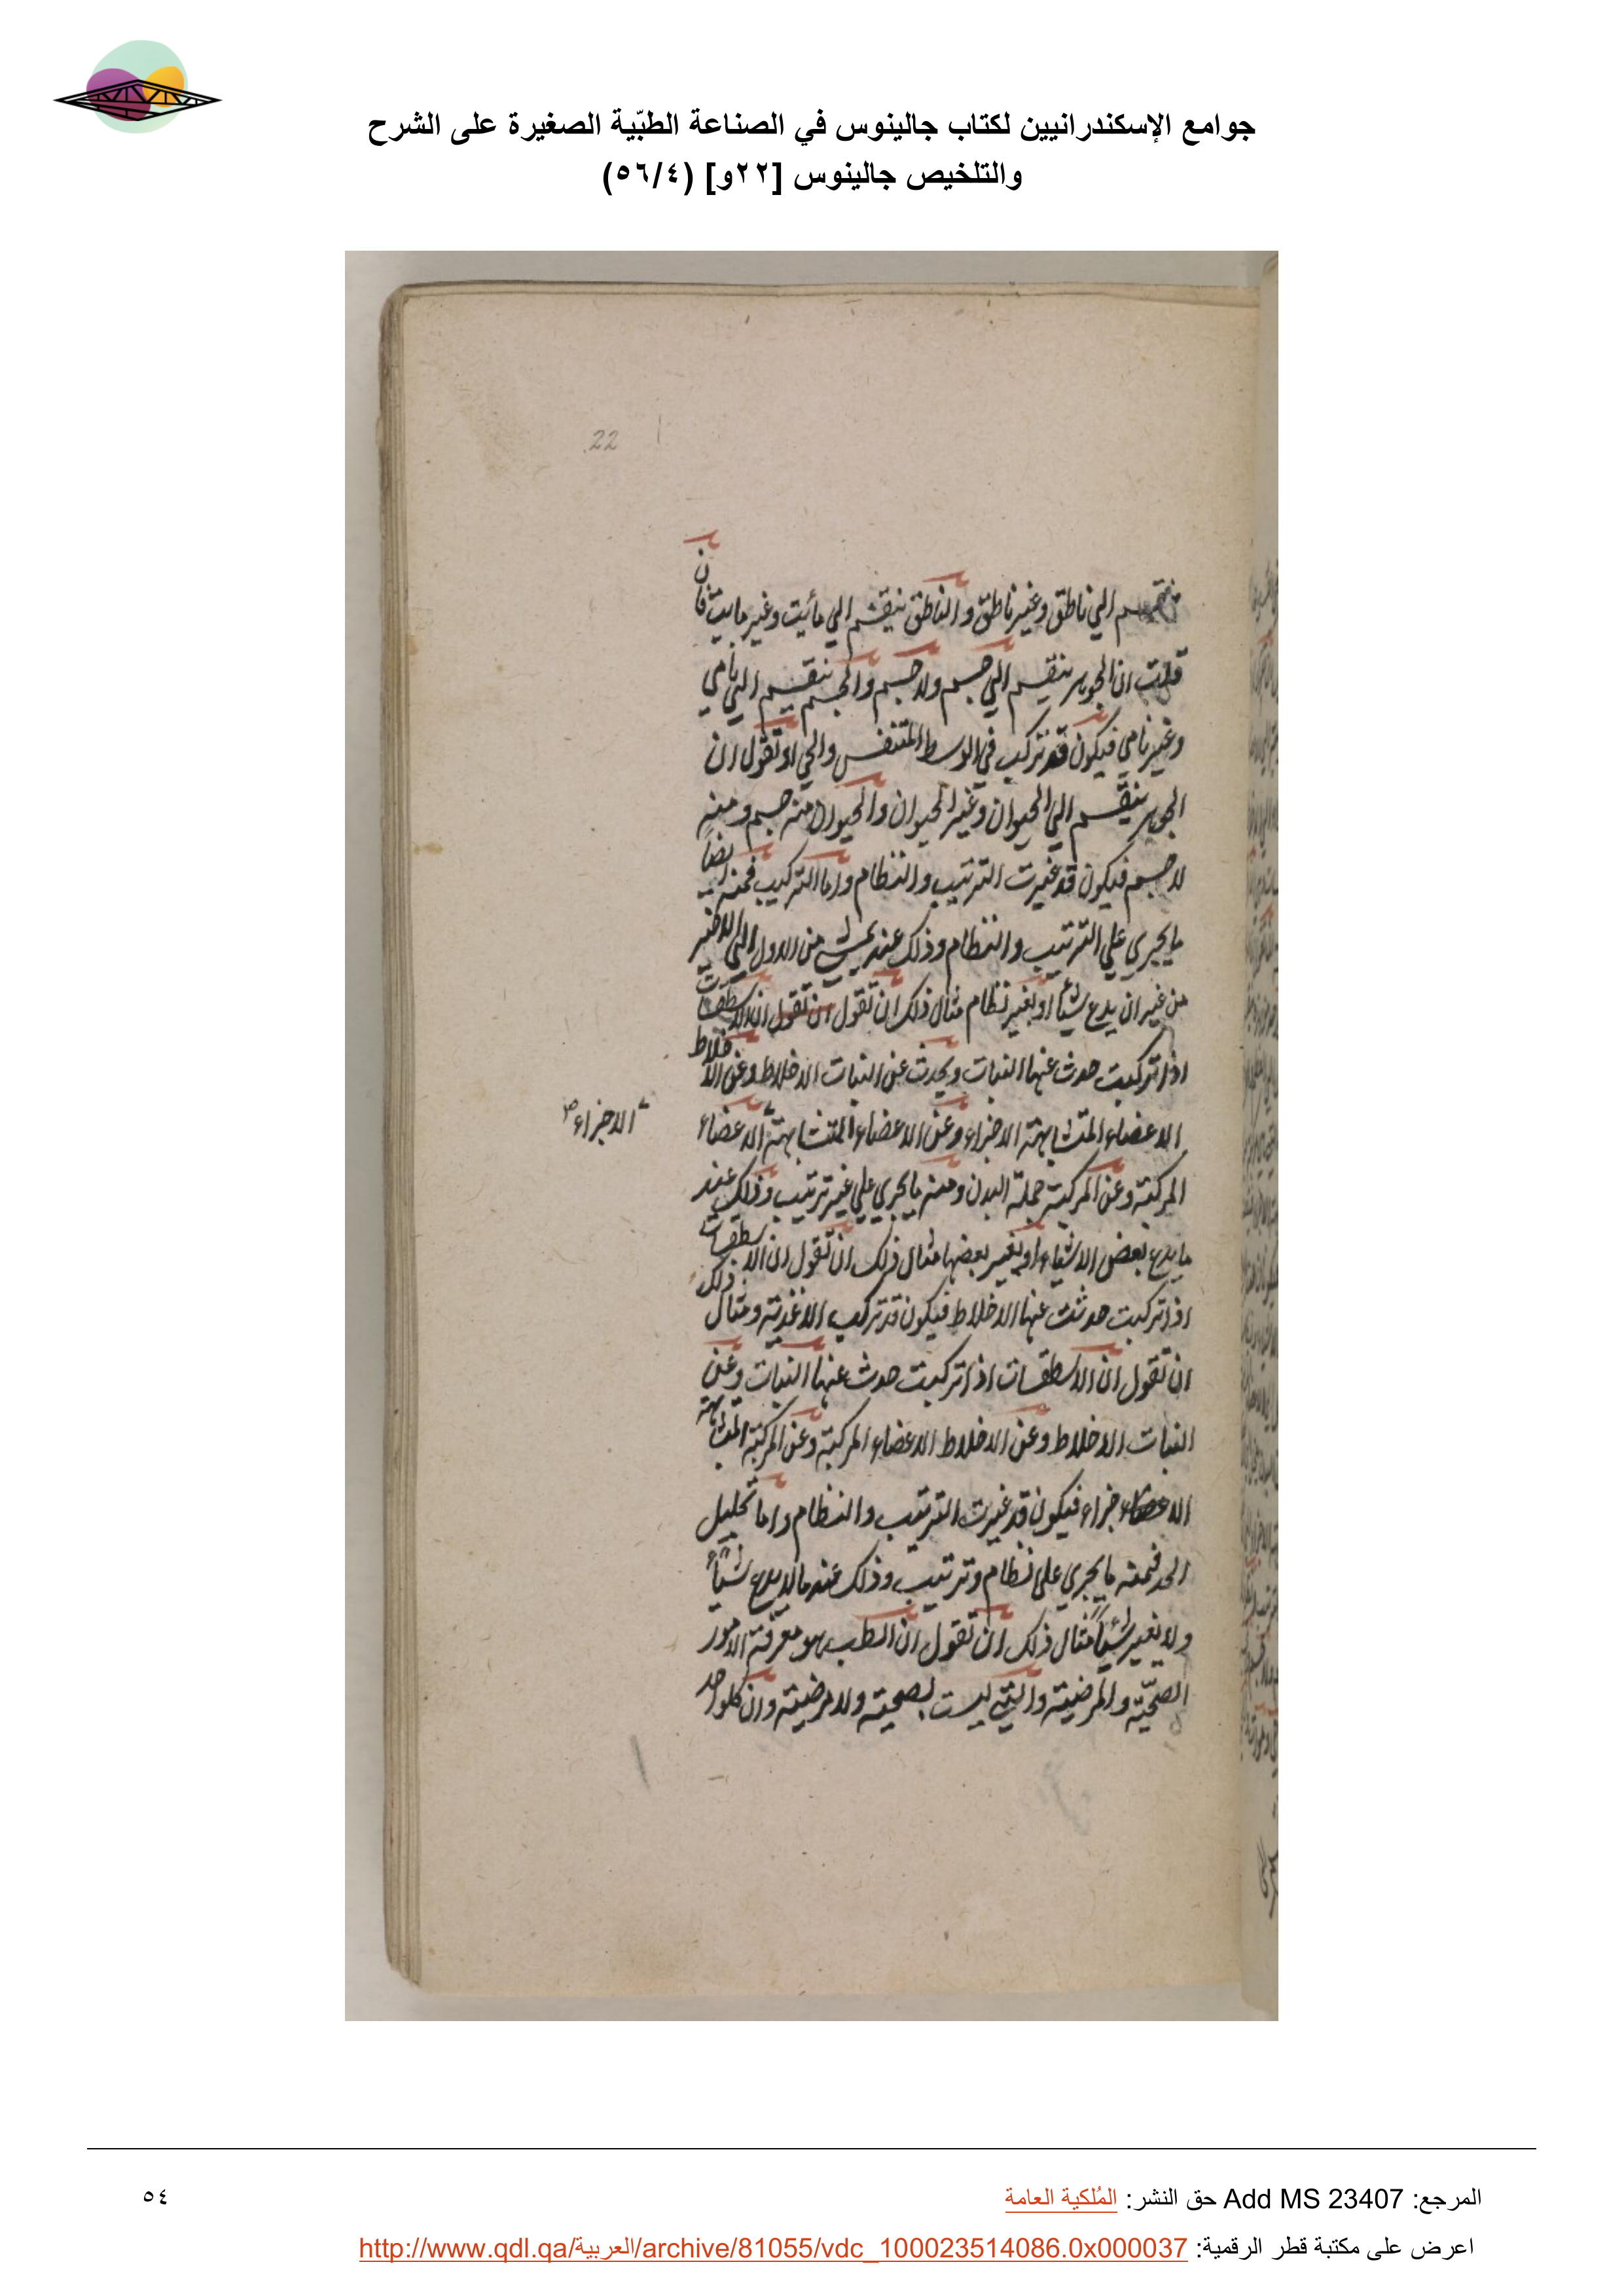 جوامع الإسكندرانيين لكتاب جالينوس في الصناعة الطبّية الصغيرة على الشرح
والتلخيص جالينوس [٢٢و] (٥٦/٤)
22
الي ناطق وغير ناطق والناطق ينقسم الي مائت وغير مايت فان
قلت ان الجوهر ينقسم الي جسم ولا جسم والجسم ينقسم الي نامي
وغير نامي فيكون قد تركب في الوسط المتنفس والحي او تقول ان
الجوهر ينقسم الي الحيوان وغير الحيوان والحيوان منه جسم ومنه
لا جسم فيكون قد غيرت الترتيب والنظام واما التركيب فمنه ايضا
ما يجري علي الترتيب والنظام وذلك عند من الاول الي الاخير
من غير ان يدع شيأ او بغير نظام مثال ذلك ان تقول ان تقول ان الاسطقسات
اذا تركبت حدث عنها النبات ويحدث عن النبات الاخلاط وعن الاخلاط
الاعضاء المتشابهة الاجزاء وعن الاعضاء المتشابهة الاعضاء
الاجزاء صح
المركبة وعن المركبة جملة البدن ومنه ما يجري علي غير ترتيب وذلك عند
ما يدع بعض الاشياء او يغير بعضها مثال ذلك ان تقول ان الاسطقسات
اذا تركبت حدثت عنها الاخلاط فيكون قد تركب الاغذية ومثال ذلك
ان تقول ان الاسطقسات اذا تركبت حدث عنها النبات وعن
النبات الاخلاط وعن الاخلاط الاعضاء المركبة وعن المركبة المتشابهة
فيكون قد غيرت الترتيب والنظام واما تحليل
الحد فمنه ما يجري علي نظام وترتيب وذلك عند ما لا يدع شيأ
ولا يغير شيأ مثال ذلك ان تقول ان الطب هو معرفة الامور
الصحية والمرضية والتي ليست بصحية ولا مرضية وان كل واحد
المرجع: Add MS 23407 حق النشر: المُلكية العامة
٥٤
اعرض على مكتبة قطر الرقمية: http://www.qdl.qa/العربية/archive/81055/vdc_100023514086.0x000037